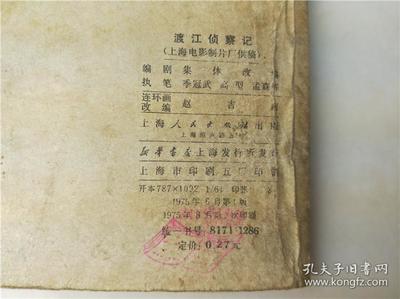 渡江侦察记
(上海电影制片厂供稿)
编剧 集体改
执笔 季冠武 高型 孟森辉
连环画
改编 赵吉
上海人民出版社出版
上海绍兴路5号
新华书店上海发行所发行
上海市印刷五厂印
开本787×1092 1/64 印张
1975年6月第1版
1975年8月
统一书号 8171·1286
定价: 0.27元
孔夫子旧书网
www.kongfz.com